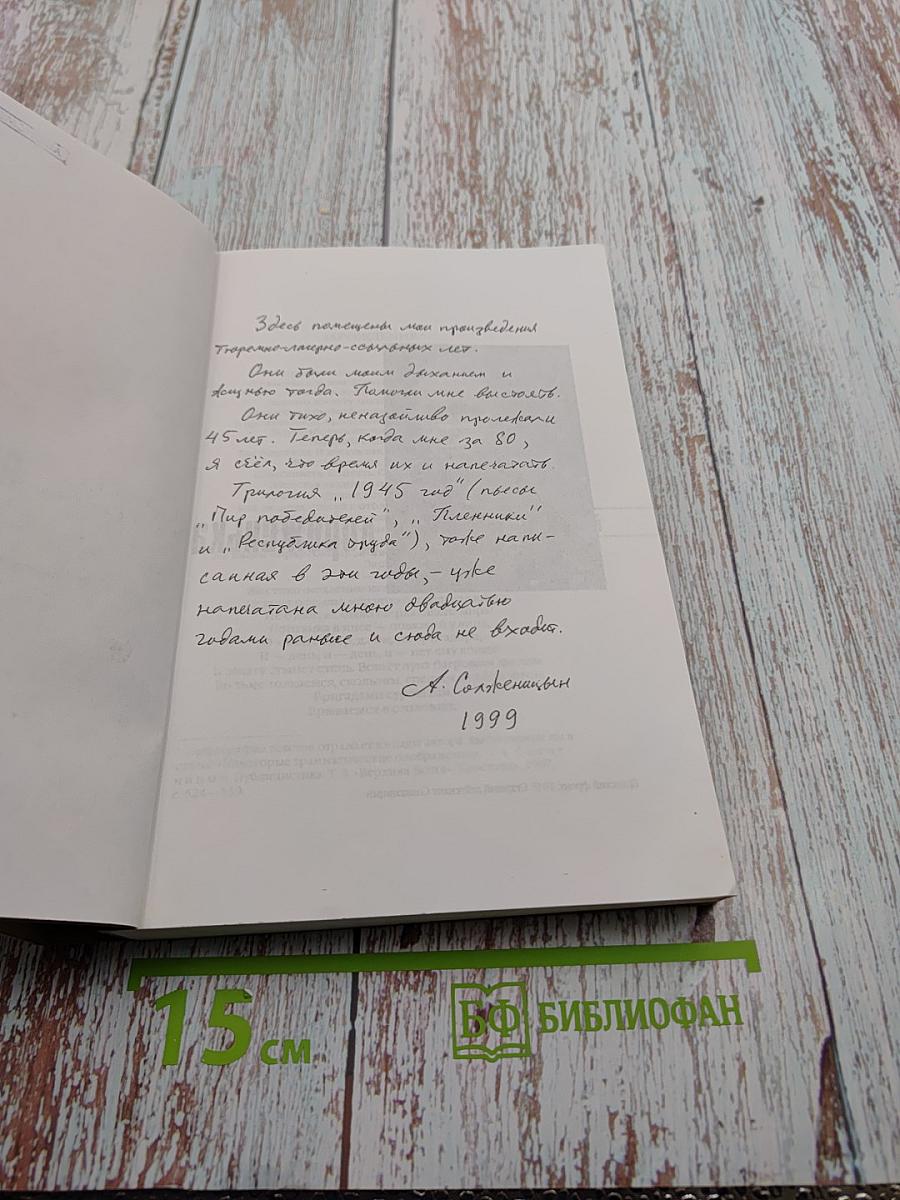 Здесь помещены мои произведения
тюремно-лагерно-ссыльных лет.
Они были моим дыханием и
жизнью тогда. Помогли мне выстоять.
Они тихо, неназойливо пролежали
45 лет. Теперь, когда мне за 80,
я счёл, что время их и напечатать.
Трилогия „1945 год" (пьесы
„Пир победителей", „Пленники"
и „Республика труда"), тоже напи-
санная в эти годы, – уже
напечатана мною двадцатью
годами раньше и сюда не входит.
А. Солженицын
1999
15 см
БФ БИБЛИОФАН